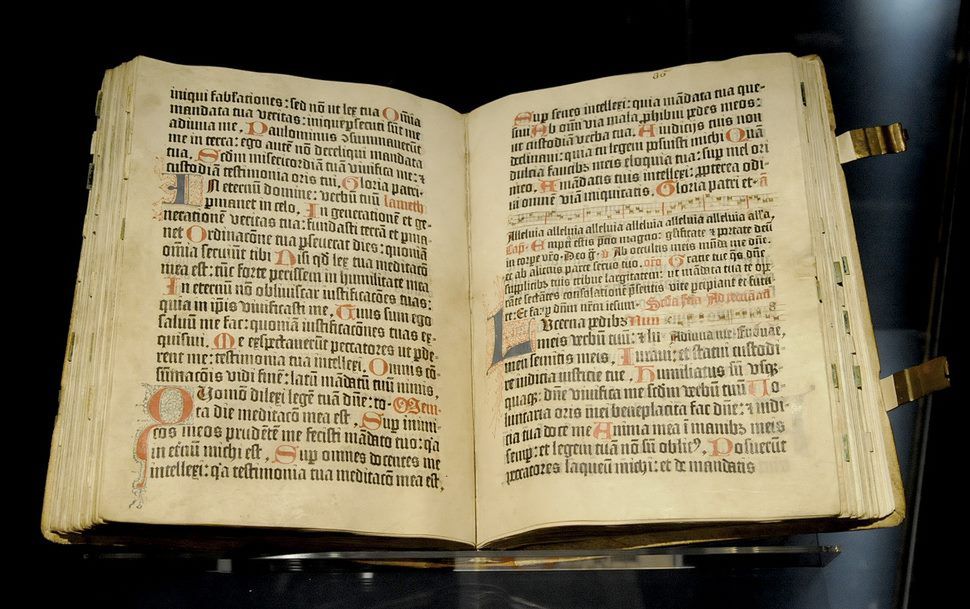 iniqui fabulationes: sed nõ ut lex tua Omnia
mandata tua veritas: inique persecuti sūt me
adiuua me. Paulominus ꝯsummauerūt
me in terra: ego autē nõ dereliqui mandata
tua. Scdm misericordiā tuā viuifica me: ⁊
custodiā testimonia oris tui. Gloria patri.
In eternū domine: verbū tuū lameth
ꝑmanet in celo. In generationē et ge-
nerationē veritas tua: fundasti terrā et ꝑma-
net Ordinacõne tua ꝑseuerat dies: quoniā
omnia seruiūt tibi Nisi qđ lex tua meditacõ
mea est: tūc forte perissem in humilitate mea
In eternū nõ obliuiscar iustificacões tuas:
quia in ip̄is viuificasti me. Tuus sum ego
saluū me fac: quoniā iustificacões tuas ex-
quisiui. Me exspectauerūt peccatores ut ꝑde-
rent me: testimonia tua intellexi. Omnis cõ-
summacõis vidi finē: latū mādatū tuū nimis.
Quomõ dilexi legē tuā dñe: to- Mem
ta die meditacõ mea est. Sup inimi-
cos meos prudētē me fecisti mādato tuo: q'a
in eternū michi est. Sup omnes docentes me
intellexi: q'a testimonia tua meditacõ mea est.
86
Sup senes intellexi: quia mādata tua que-
siui Ab omni via mala ꝓhibui pedes meos:
ut custodiā verba tua. A iudicijs tuis non
declinaui: quia tu legem posuisti michi Quā
dulcia faucibꝫ meis eloquia tua: sup mel ori
meo. A mādatis tuis intellexi: ꝓpterea odi-
ui omnē viā iniquitatis. Gloria patri et. a
Alleluia alleluia alleluia alleluia alleluia all'a.
Cap. Empti estis p̄cio magno: gl'ificate ⁊ portate deū
in corpe vr̄o. Deo g̃. v Ab occultis meis mūda me dñe.
et ab alienis parce seruo tuo. oro. Gratia tue q̄s dñe
supplicibꝫ tuis tribue largitatem: ut mādata tua te oꝑ-
rāte sectātes consolationē p̄sentis vite ꝑcipiant et futu-
re: Et fa. p dñm nr̄m iesum. Ad
Lucerna pedibꝫ Nun
meis verbū tuū: ⁊ lu- Adiuua me
men semitis meis. Iuraui: et statui custodi-
re iudicia iusticie tue. Humiliatus sū vsqꝫ-
quaqꝫ: dñe viuifica me scdm verbū tuū Uo-
luntaria oris mei beneplacita fac dñe: ⁊ iudi-
cia tua doce me Anima mea ī manibꝫ meis
semp: et legem tuā nõ sū oblit⁹. Posuerūt
peccatores laqueū michi: et de mandatis